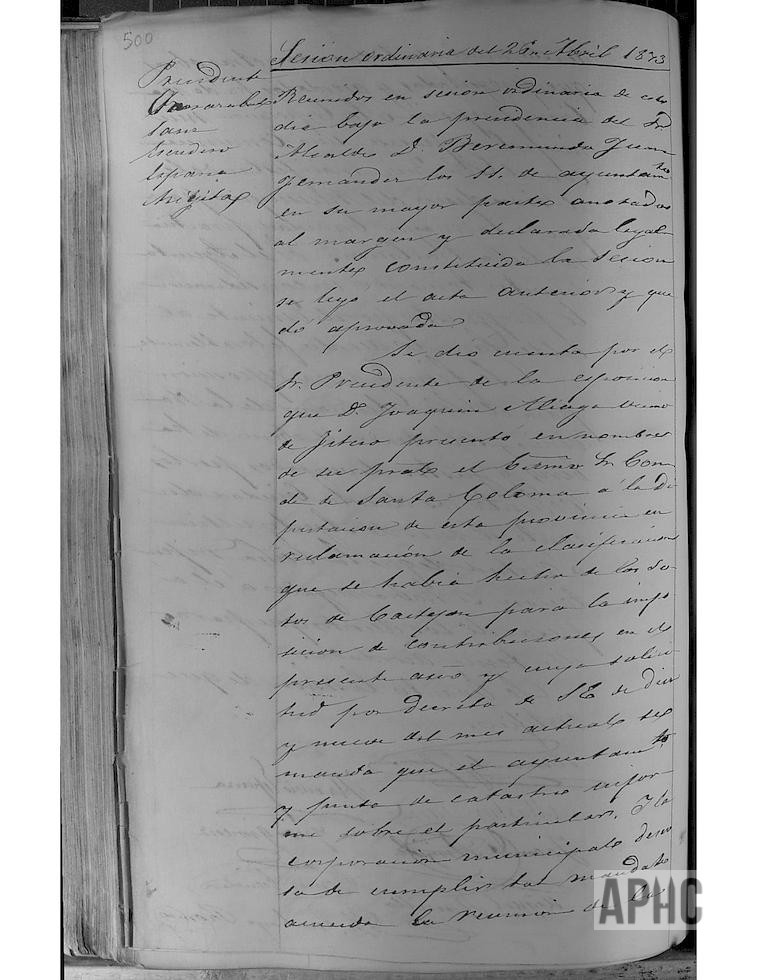 500
Sesion ordinaria del 26 Abril 1873
Presidente
Sanz
Escudero
España
Reunidos en sesion ordinaria de este
dia bajo la presidencia del Sr.
Alcalde D. Beremundo Juan
Fernandez los SS. de ayuntamto
en su mayor parte anotados
al margen y declarada legal-
mente constituida la sesion
se leyo el acta anterior y que
dó aprovada
Se dio cuenta por el
Sr. Presidente de la esposicion
que D. Joaquin Aliaga vecino
de Fitero presento en nombre
de su pral el Esmo Sr. Con
de de Santa Coloma á la Di
putacion de esta provincia en
reclamación de la clasificacion
que se habia hecho de los So-
tos de Castejon para la impo
sicion de contribuciones en el
presente año y cuya solici-
tud por decreto de S.E. de diez
y nueve del mes actual se
manda que el ayuntamto
y junta de catastro infor-
me sobre el particular. Y la
corporación municipal deseo
sa de cumplir tal mandato
acuerda la reunion de los
APHC